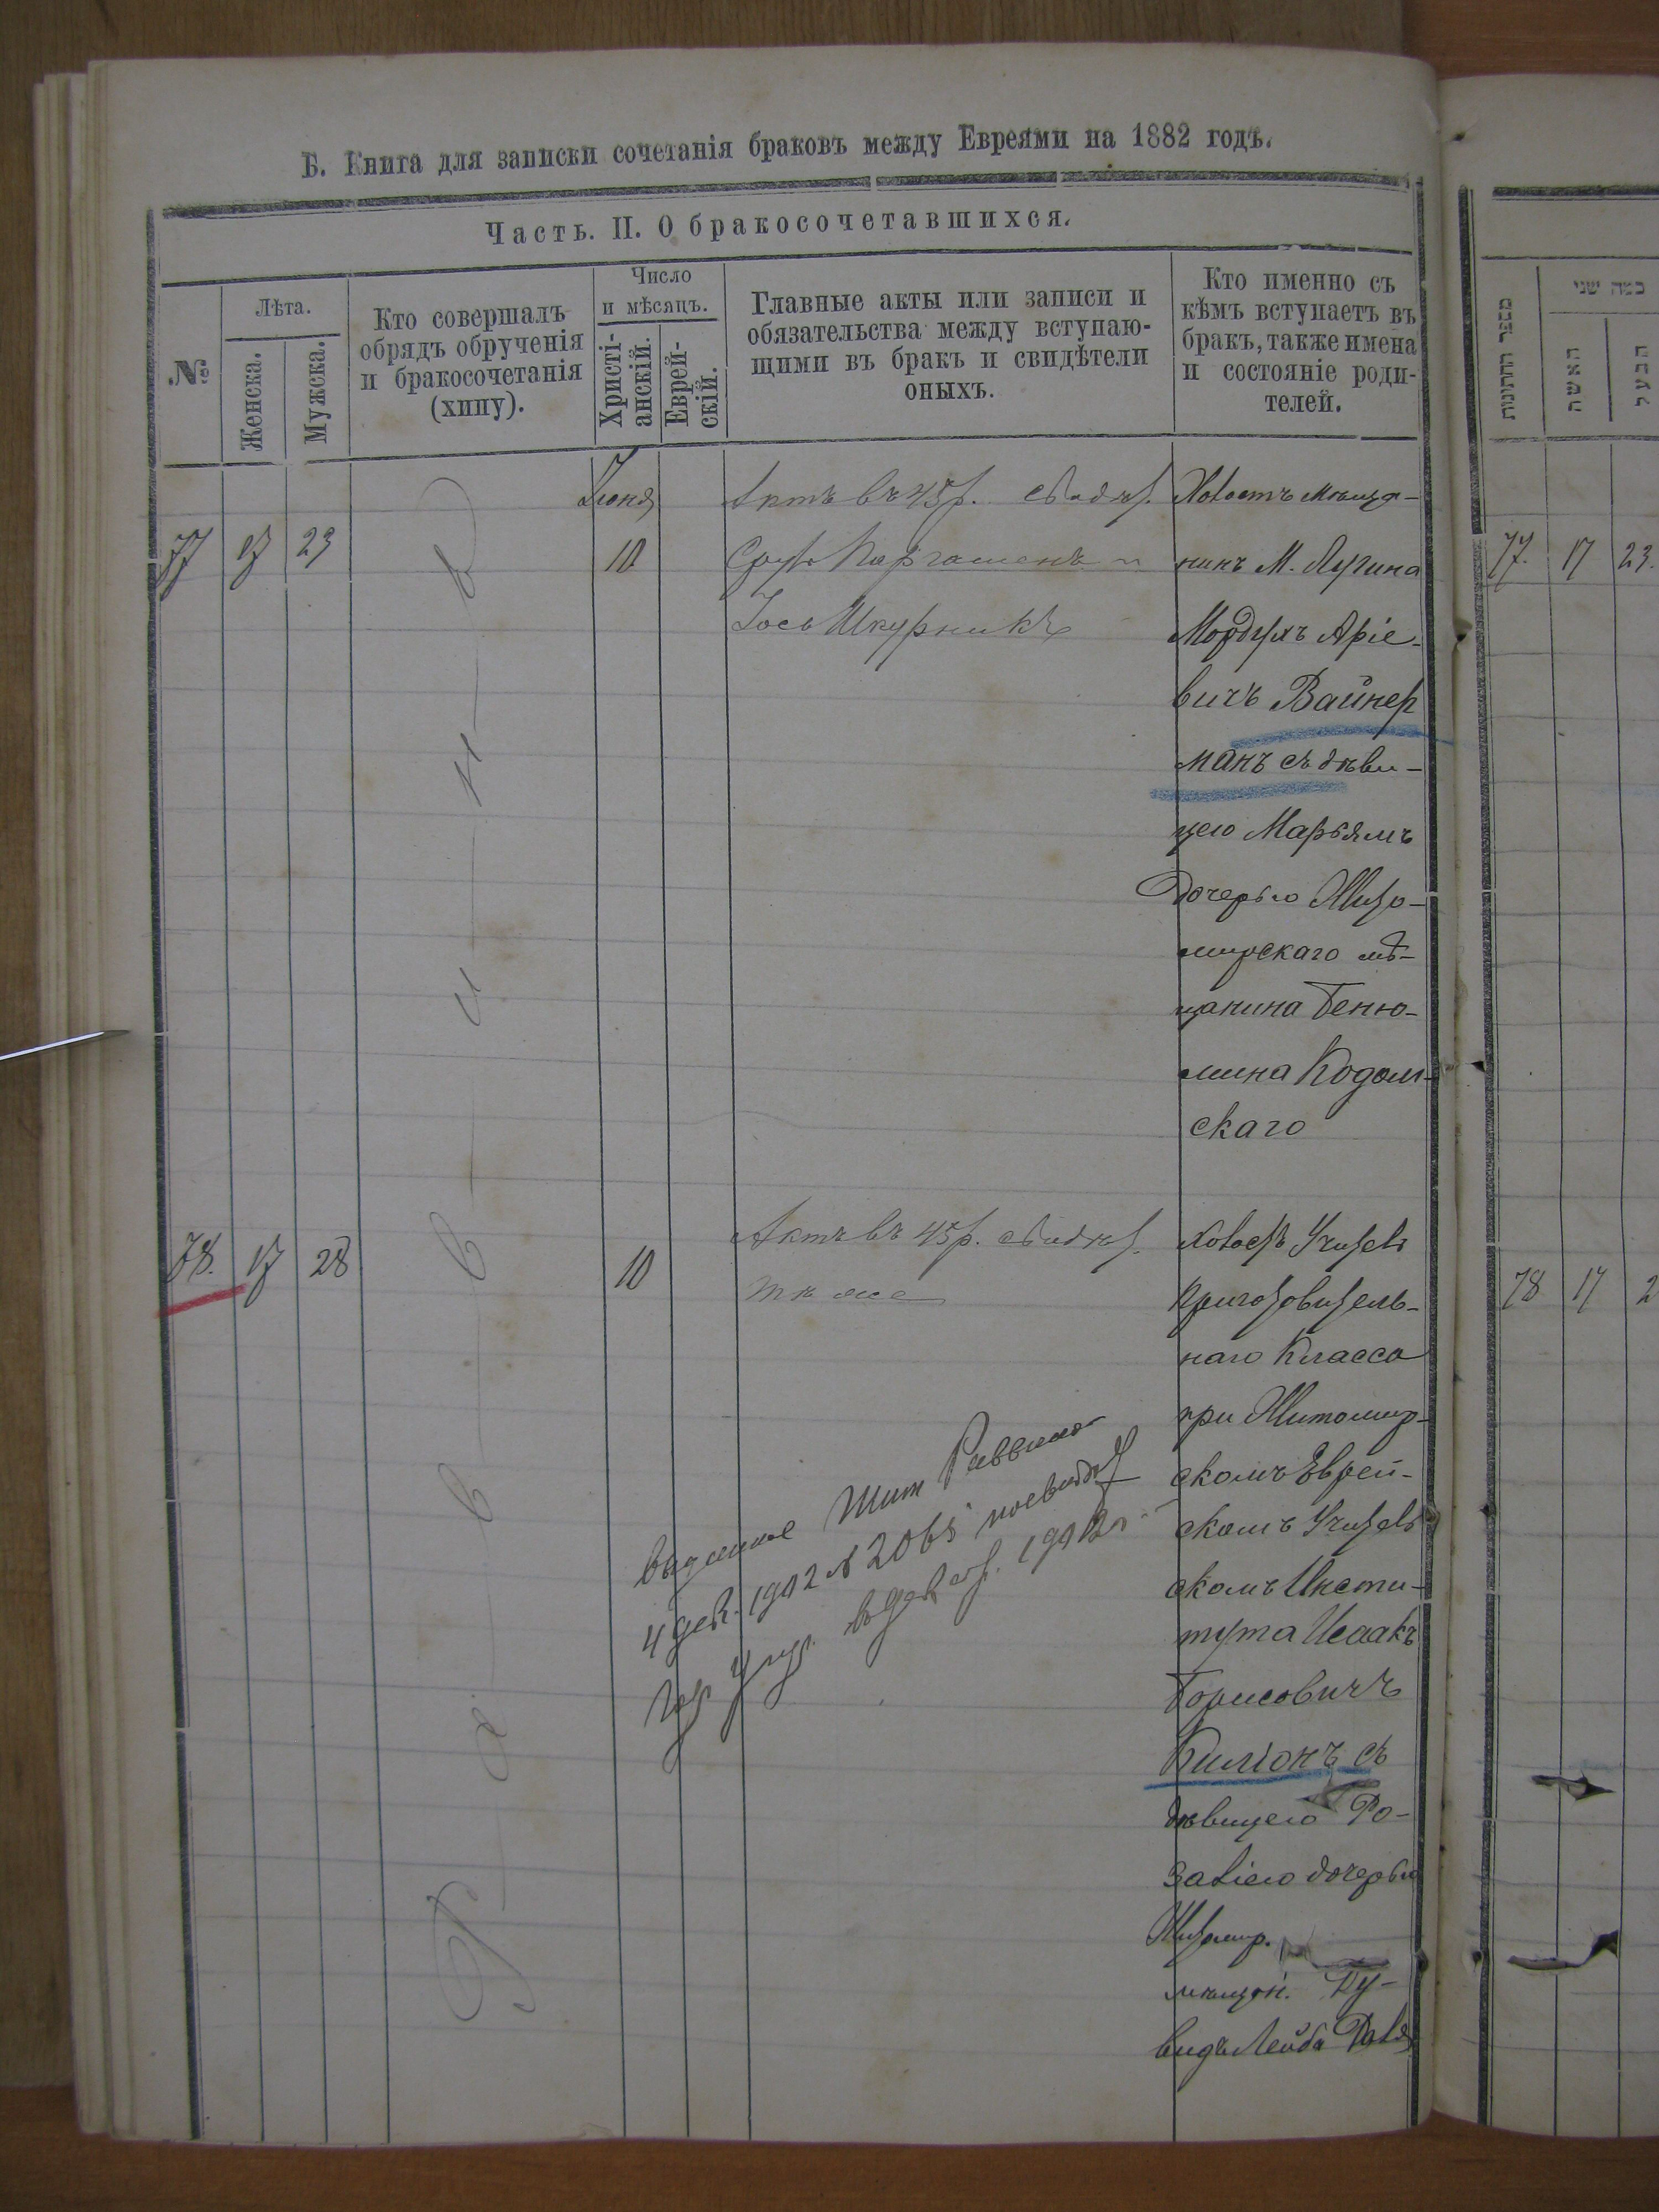 Б. Книга для записки сочетанія браковъ между Евреями на 1882 годъ.
Часть. II. О бракосочетавшихся.
№
Лѣта.
Женска.
Мужска.
Кто совершалъ
обрядъ обрученія
и бракосочетанія
(хипу).
Число
и мѣсяцъ.
Христі-
анскій.
Еврей-
скій.
Главные акты или записи и
обязательства между вступаю-
щими въ бракъ и свидѣтели
оныхъ.
Кто именно съ
кѣмъ вступаетъ въ
бракъ, также имена
и состояніе роди-
телей.
Раввинъ
77 17 23
Іюня
10
Актъ въ 45 р. свидѣт.
и
Іось Шкурникъ
Холостъ мѣща-
нинъ М. Лугина
Мордухъ Аріе-
вичъ Вайнер
манъ съ дѣви-
цею Марьямъ
дочерью Жито-
мирскаго мѣ-
щанина Беню-
мина
скаго
78. 17 28
10
Актъ въ 45 р. свидѣт.
тѣ же
Холостъ Учитель
приготовитель-
наго Класса
при Житомир-
скомъ Еврей-
скомъ Учитель
скомъ Инсти-
тута Исаакъ
Борисовичъ
Киліонъ съ
дѣвицею Ро-
заліею дочерью
Житомир.
мѣщан.
Лейба
4 дек. 1912 № 2065
1912 г.
מספר החתונות
כמה שני
האשה
הבעל
77. 17 23.
78 17 2